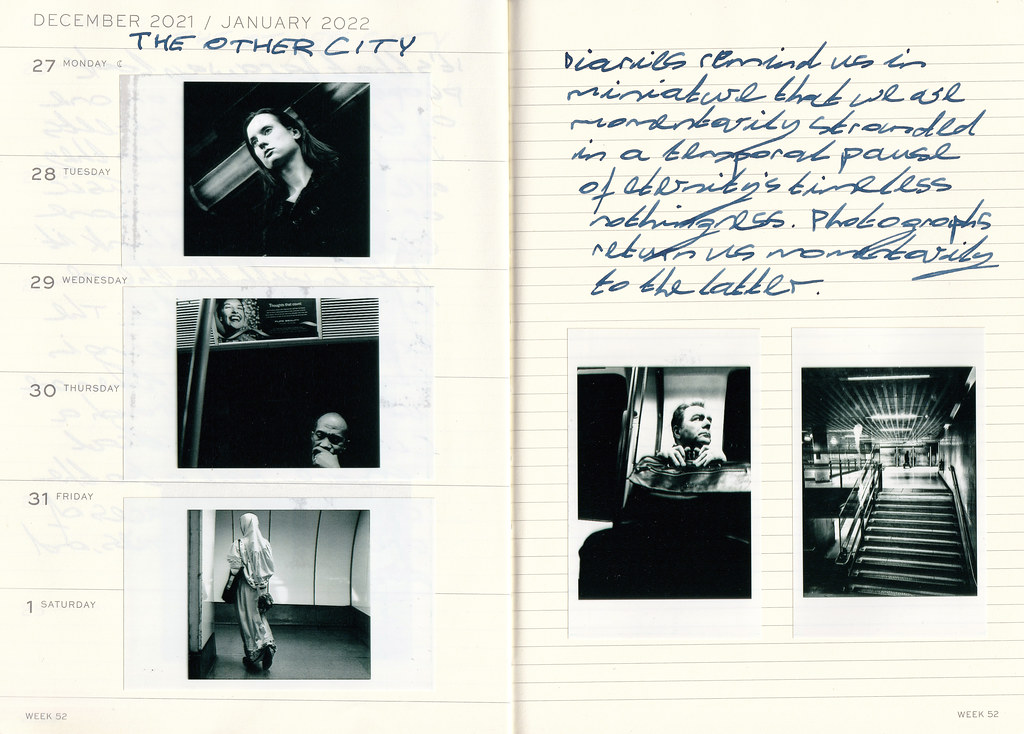 DECEMBER 2021 / JANUARY 2022
THE OTHER CITY
27 MONDAY
28 TUESDAY
29 WEDNESDAY
30 THURSDAY
31 FRIDAY
1 SATURDAY
WEEK 52
Diaries remind us in
miniature that we are
momentarily stranded
in a temporal pause
of eternity's timeless
nothingness. Photographs
return us momentarily
to the latter.
WEEK 52